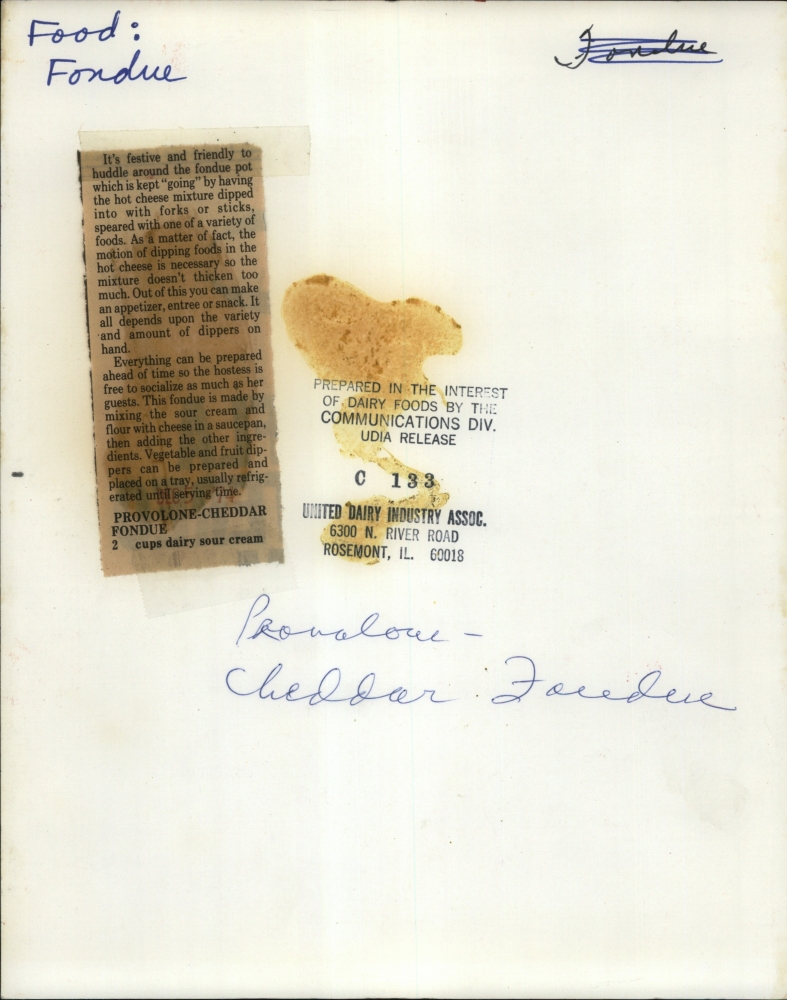 Food:
Fondue
Fondue
It's festive and friendly to
huddle around the fondue pot
which is kept "going" by having
the hot cheese mixture dipped
into with forks or sticks,
speared with one of a variety of
foods. As a matter of fact, the
motion of dipping foods in the
hot cheese is necessary so the
mixture doesn't thicken too
much. Out of this you can make
an appetizer, entree or snack. It
all depends upon the variety
and amount of dippers on
hand.
Everything can be prepared
ahead of time so the hostess is
free to socialize as much as her
guests. This fondue is made by
mixing the sour cream and
flour with cheese in a saucepan,
then adding the other ingre-
dients. Vegetable and fruit dip-
pers can be prepared and
placed on a tray, usually refrig-
erated until serving time.
PROVOLONE-CHEDDAR
FONDUE
2 cups dairy sour cream
PREPARED IN THE INTEREST
OF DAIRY FOODS BY THE
COMMUNICATIONS DIV.
UDIA RELEASE
C 133
UNITED DAIRY INDUSTRY ASSOC.
6300 N. RIVER ROAD
ROSEMONT, IL. 60018
Provolone -
Cheddar Fondue